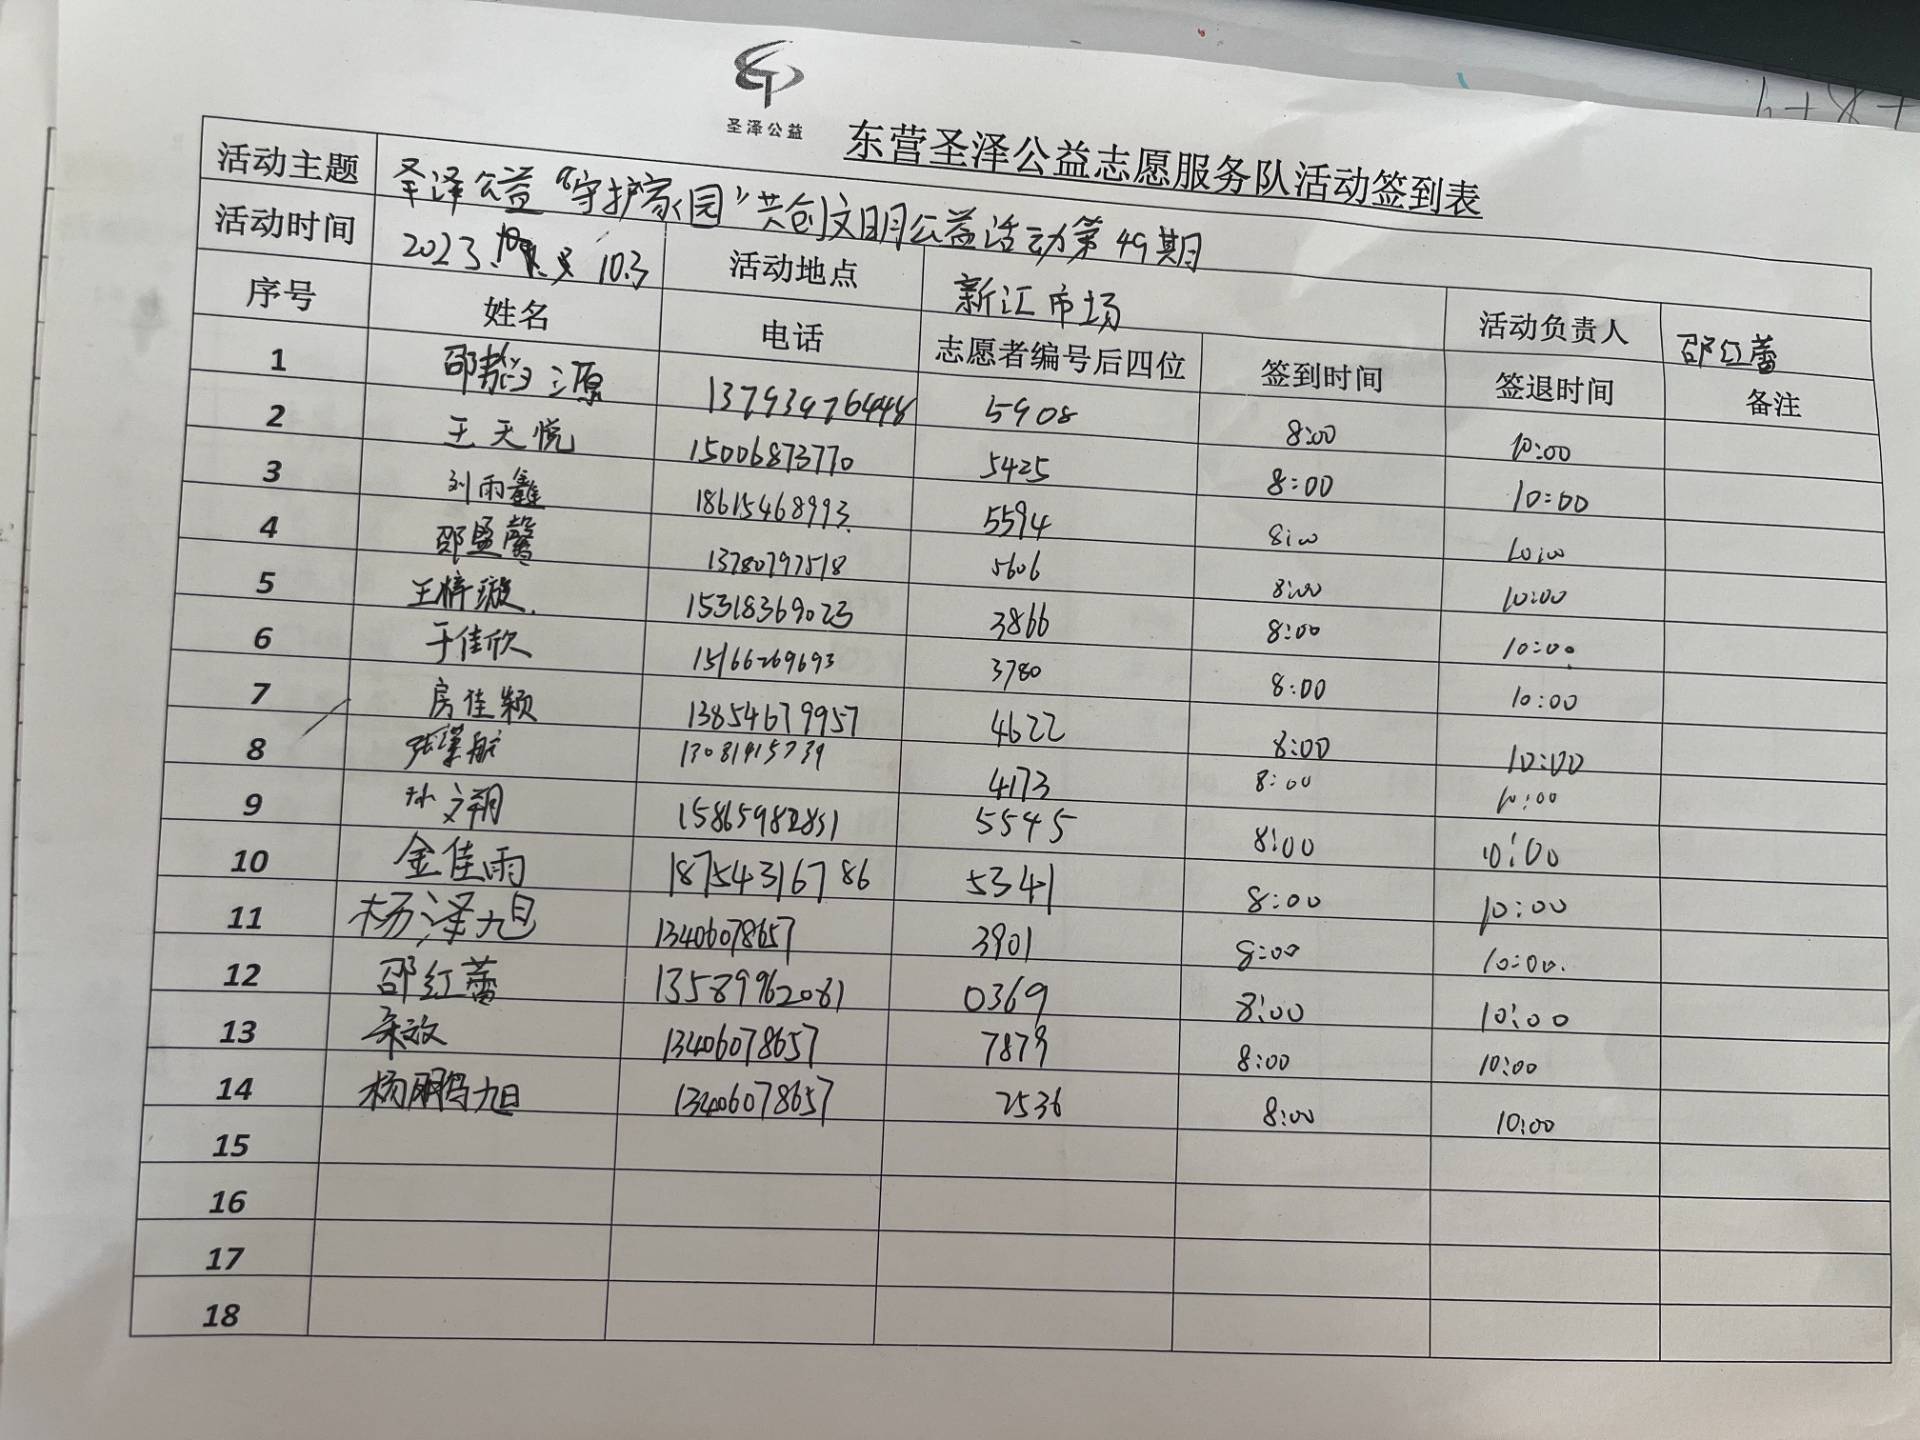 圣泽公益
东营圣泽公益志愿服务队活动签到表
活动主题 圣泽公益“守护家园”共创文明公益活动第49期
活动时间 2023. 10.3 活动地点 新汇市场 活动负责人 邵红蕾
序号 姓名 电话 志愿者编号后四位 签到时间 签退时间 备注
1 邵 源 13793976448 5908 8:00 10:00
2 王天悦 15006873770 5425 8:00 10:00
3 刘雨鑫 18615468993 5594 8:00 10:00
4 邵盈馨 13780797518 5606 8:00 10:00
5 王梓漩 15318369023 3866 8:00 10:00
6 于佳欣 15166269693 3780 8:00 10:00
7 房佳颖 13854679957 4622 8:00 10:00
8 张 航 13081915739 4173 8:00 10:00
9 孙文翔 15865982851 5545 8:00 10:00
10 金佳雨 18754316786 5341 8:00 10:00
11 杨泽旭 13406078657 3901 8:00 10:00
12 邵红蕾 13589962081 0369 8:00 10:00
13 13406078657 7879 8:00 10:00
14 杨鹏旭 13406078657 2536 8:00 10:00
15
16
17
18